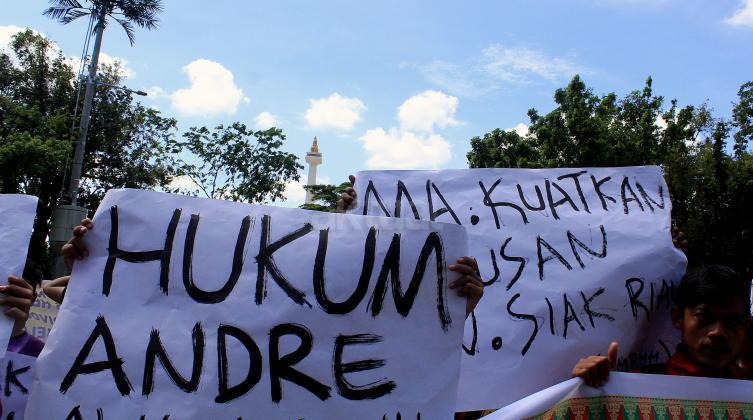 HUKUM
ANDRE
MA : KUATKAN
USAN
SIAK RIA